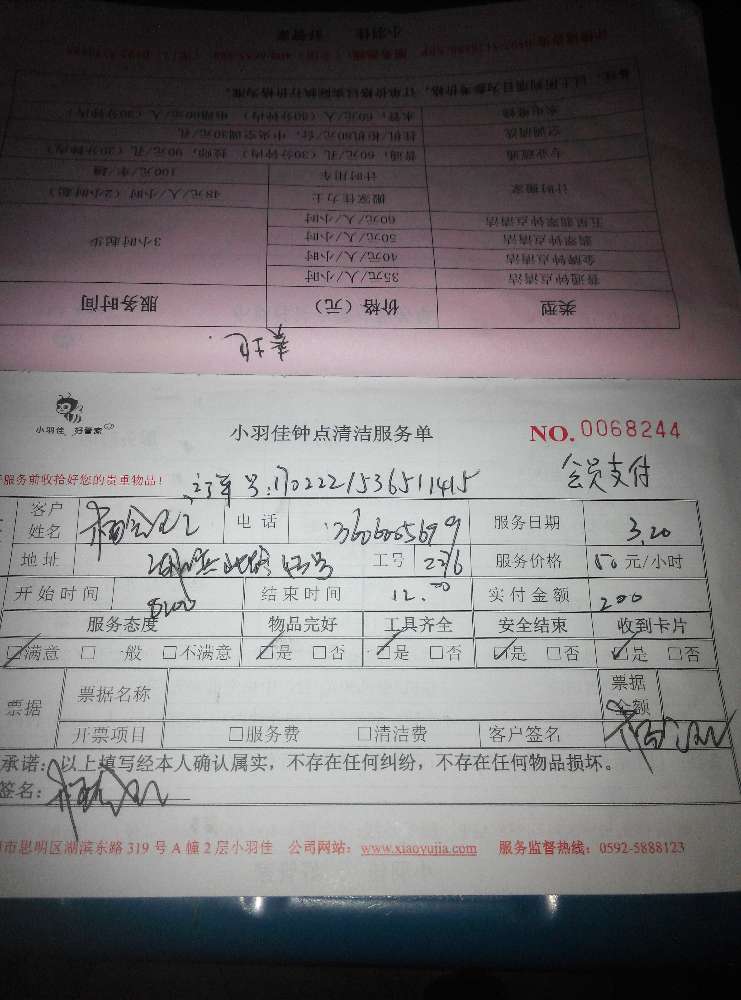 小羽佳 好管家
备注：以上所列项目为参考价格，订单价格以实际执行价格为准。
水电维修 水管，60元/人（60分钟内）
空调清洗 挂机/柜机80元/台，中央空调30元/孔
专业疏通 普通，60元/孔（30分钟内） 90元/孔（30分钟内）
计时搬家 计时用车 100元/车/趟
搬家佳力士 48元/人/小时（2小时起）
五星翡翠钟点清洁 60元/人/小时
翡翠钟点清洁 50元/人/小时 3小时起步
金牌钟点清洁 40元/人/小时
普通钟点清洁 35元/人/小时
类型 价格（元） 服务时间
小羽佳 好管家
小羽佳钟点清洁服务单 NO. 0068244
服务前收拾好您的贵重物品！ 订单号:1702221536511415 会员支付
客户姓名 电话 服务日期 3.20
地址 工号 服务价格 50 元/小时
开始时间 结束时间 12.00 实付金额 200
服务态度 物品完好 工具齐全 安全结束 收到卡片
☑满意 □一般 □不满意 ☑是 □否 ☑是 □否 ☑是 □否 ☑是 □否
票据 票据名称 票据金额
开票项目 □服务费 □清洁费 客户签名
承诺：以上填写经本人确认属实，不存在任何纠纷，不存在任何物品损坏。
签名：
市思明区湖滨东路 319 号 A 幢 2 层小羽佳 公司网站：www.xiaoyujia.com 服务监督热线：0592-5888123